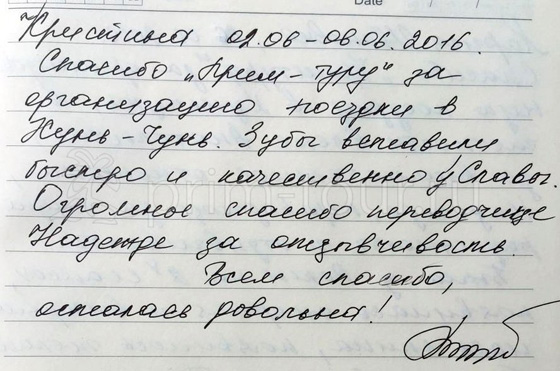 Date
Кристина 02.06 – 08.06.2016.
Спасибо „Прим-туру" за
организацию поездки в
Хунь-Чунь. Зубы вставили
быстро и качественно у Славы.
Огромное спасибо переводчице
Надежде за отзывчивость.
Всем спасибо,
осталась довольна!